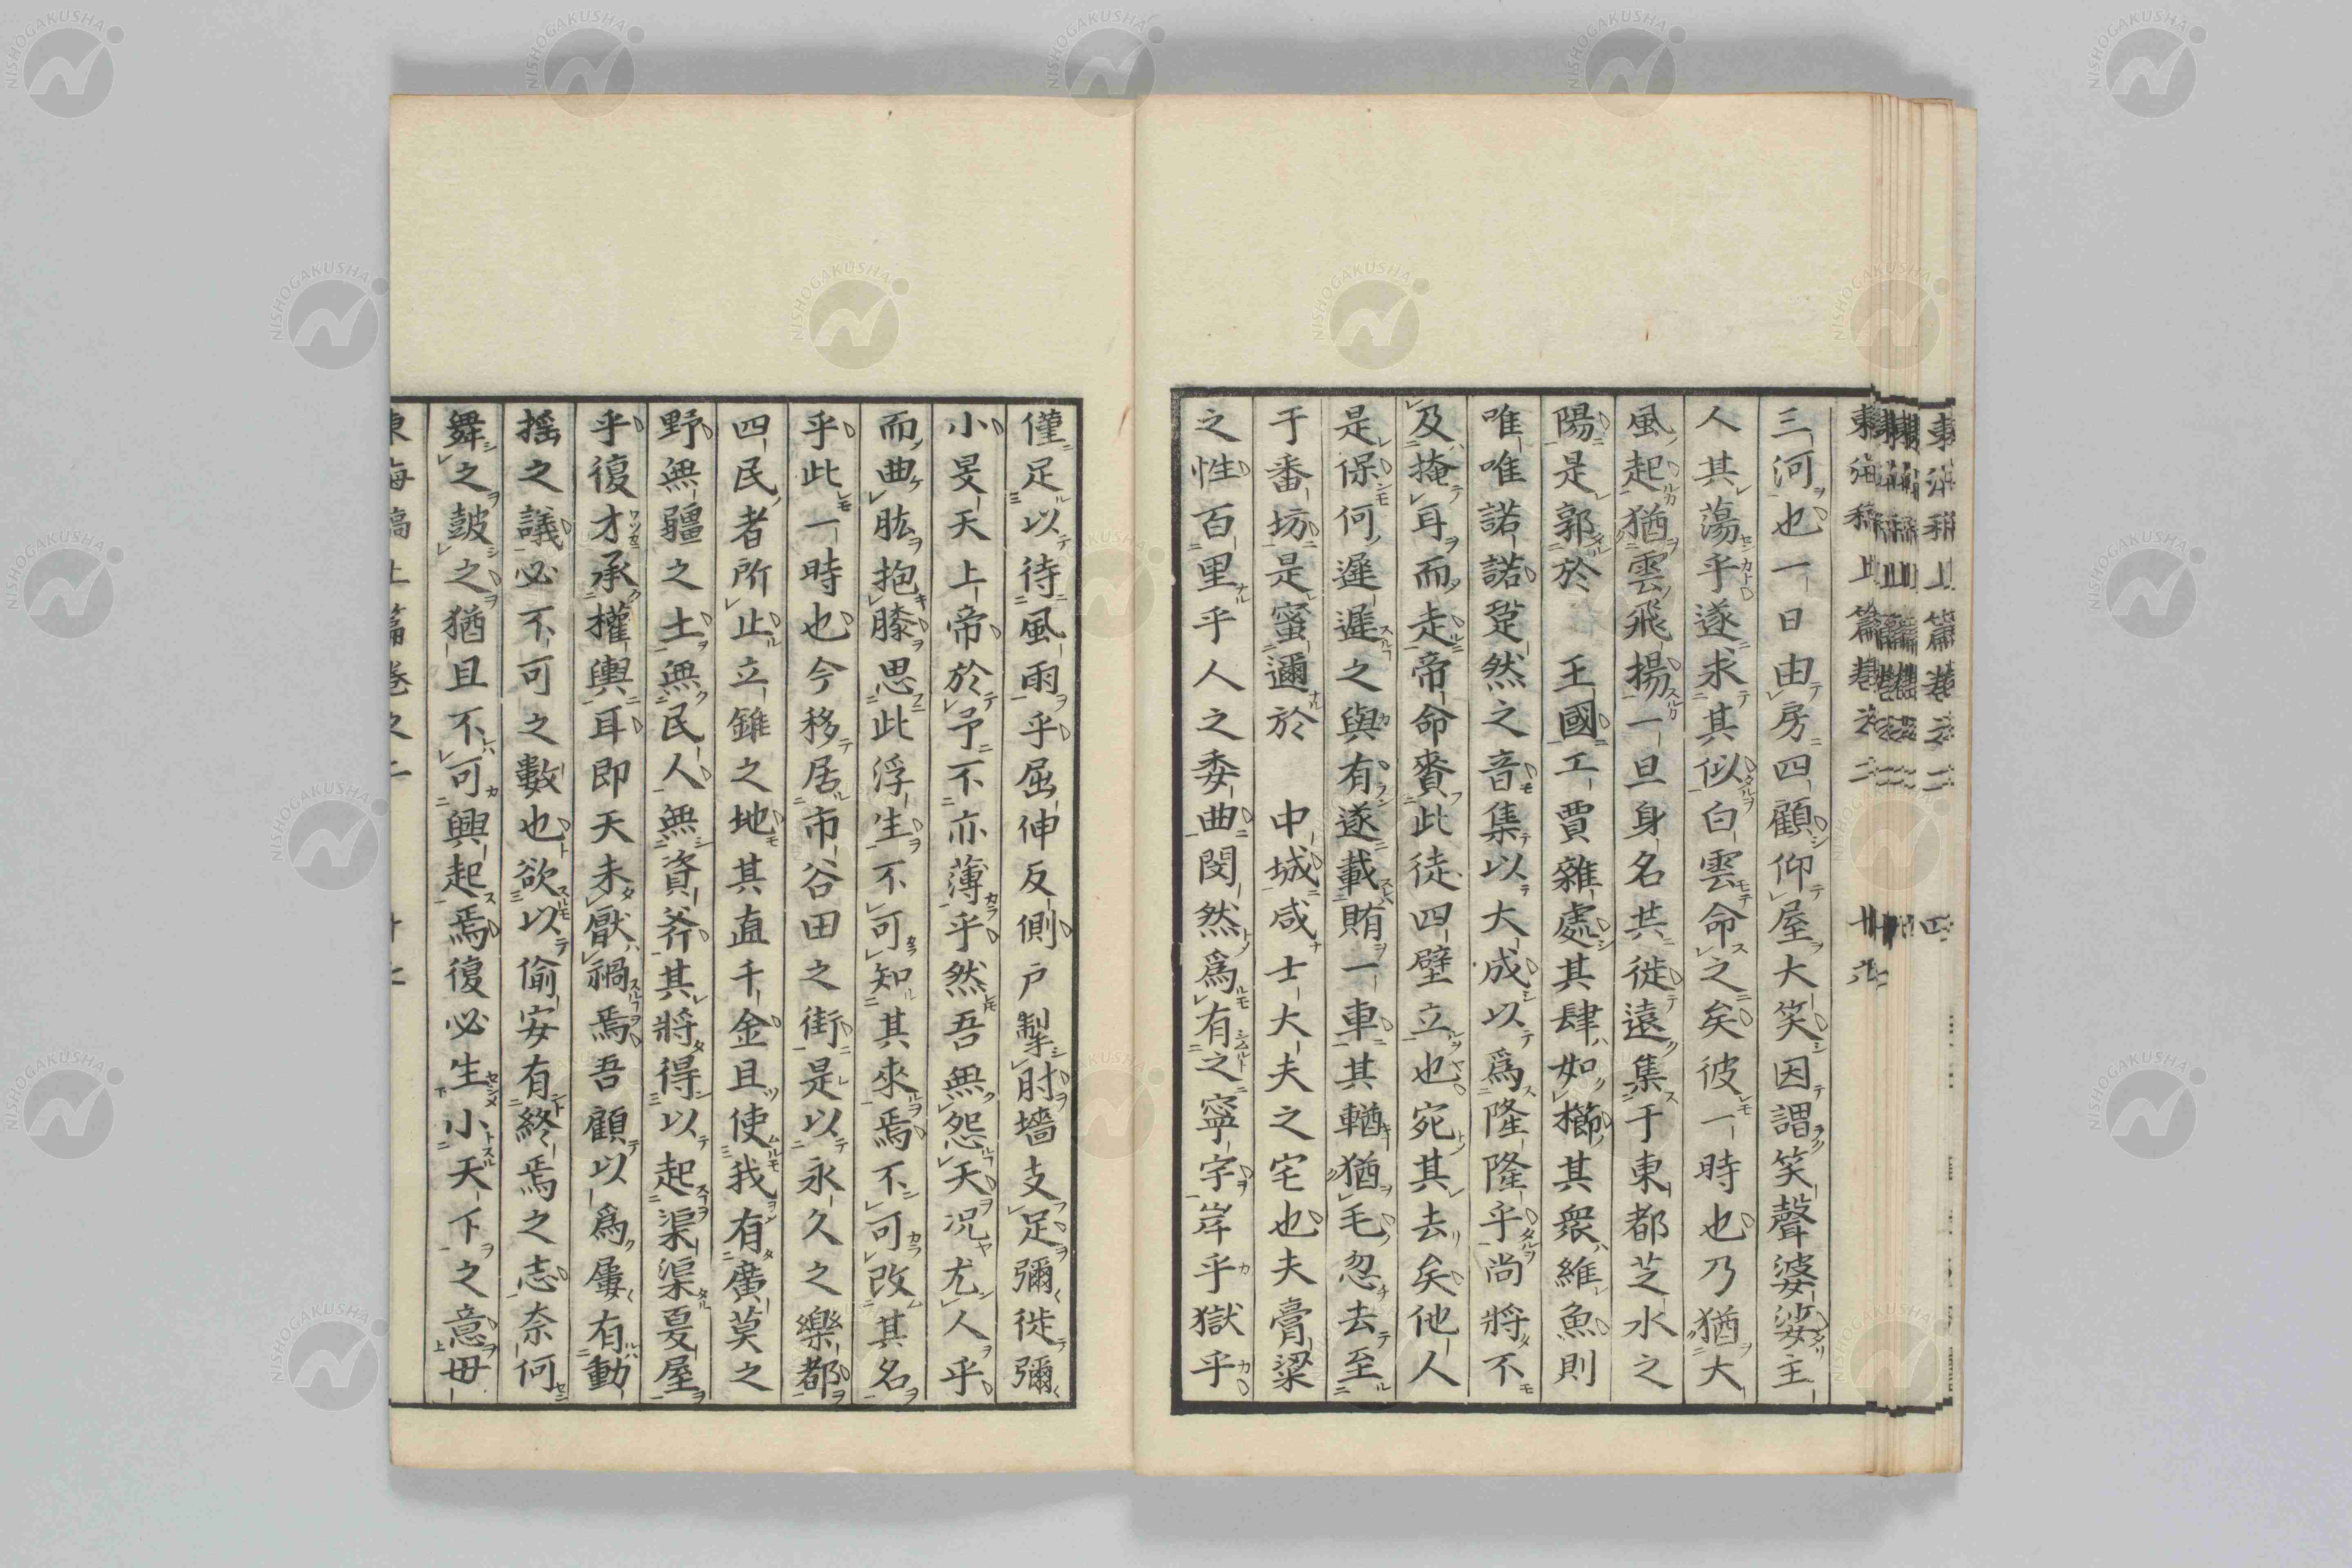 三河也一日由房四顧仰屋大笑因謂笑聲婆娑主
人其蕩乎遂求其似白雲命之矣彼一時也乃猶大
風起猶雲飛揚一旦身名共徙遠集于東都芝水之
陽是郭於 王國工賈雜處其肆如櫛其衆維魚則
唯唯諾諾跫然之音集以大成以爲隆隆乎尚將不
及掩耳而走帝命賚此徒四壁立也宛其去矣他人
是保何遲遲之與有遂載賄一車其輶猶毛忽去至
于番坊是蜜邇於 中城咸士大夫之宅也夫膏粱
之性百里乎人之委曲閔然爲有之寧字岸乎獄乎
僅足以待風雨乎屈伸反側戸掣肘墻支足彌徙彌
小旻天上帝於予不亦薄乎然吾無怨天况尤人乎
而曲肱抱膝思此浮生不可知其來焉不可改其名
乎此一時也今移居市谷田之街是以永久之樂都
四民者所止立錐之地其直千金且使我有廣莫之
野無疆之土無民人無資斧其將得以起渠渠夏屋
乎復才承權輿耳即天未厭禍焉吾顧以爲屢有動
搖之議必不可之數也欲以偷安有終焉之志奈何
舞之鼓之猶且不可興起焉復必生小天下之意毋
東海稿上篇卷之二
NISHOGAKUSHA